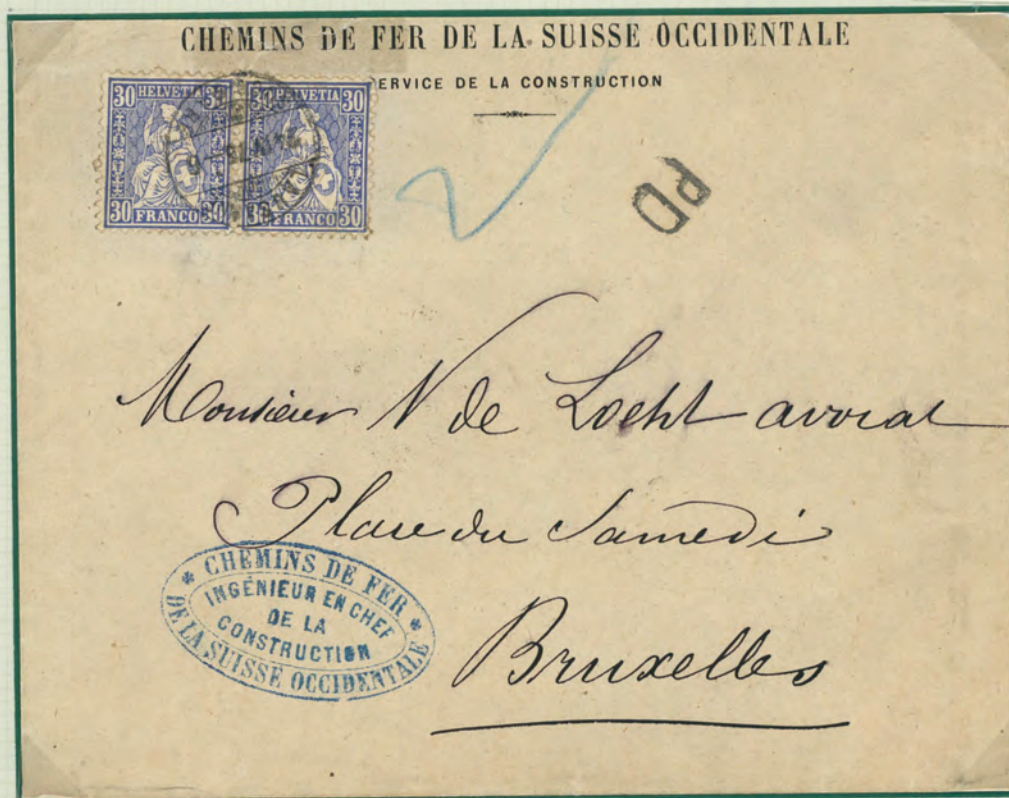 CHEMINS DE FER DE LA SUISSE OCCIDENTALE
ERVICE DE LA CONSTRUCTION
30 HELVETIA 30 30 HELVETIA 30
30 FRANCO 30 30 FRANCO 30
2
PD
Monsieur N de Locht avocat
Place du Samedi
Bruxelles
* CHEMINS DE FER *
DE LA SUISSE OCCIDENTALE
INGÉNIEUR EN CHEF
DE LA
CONSTRUCTION